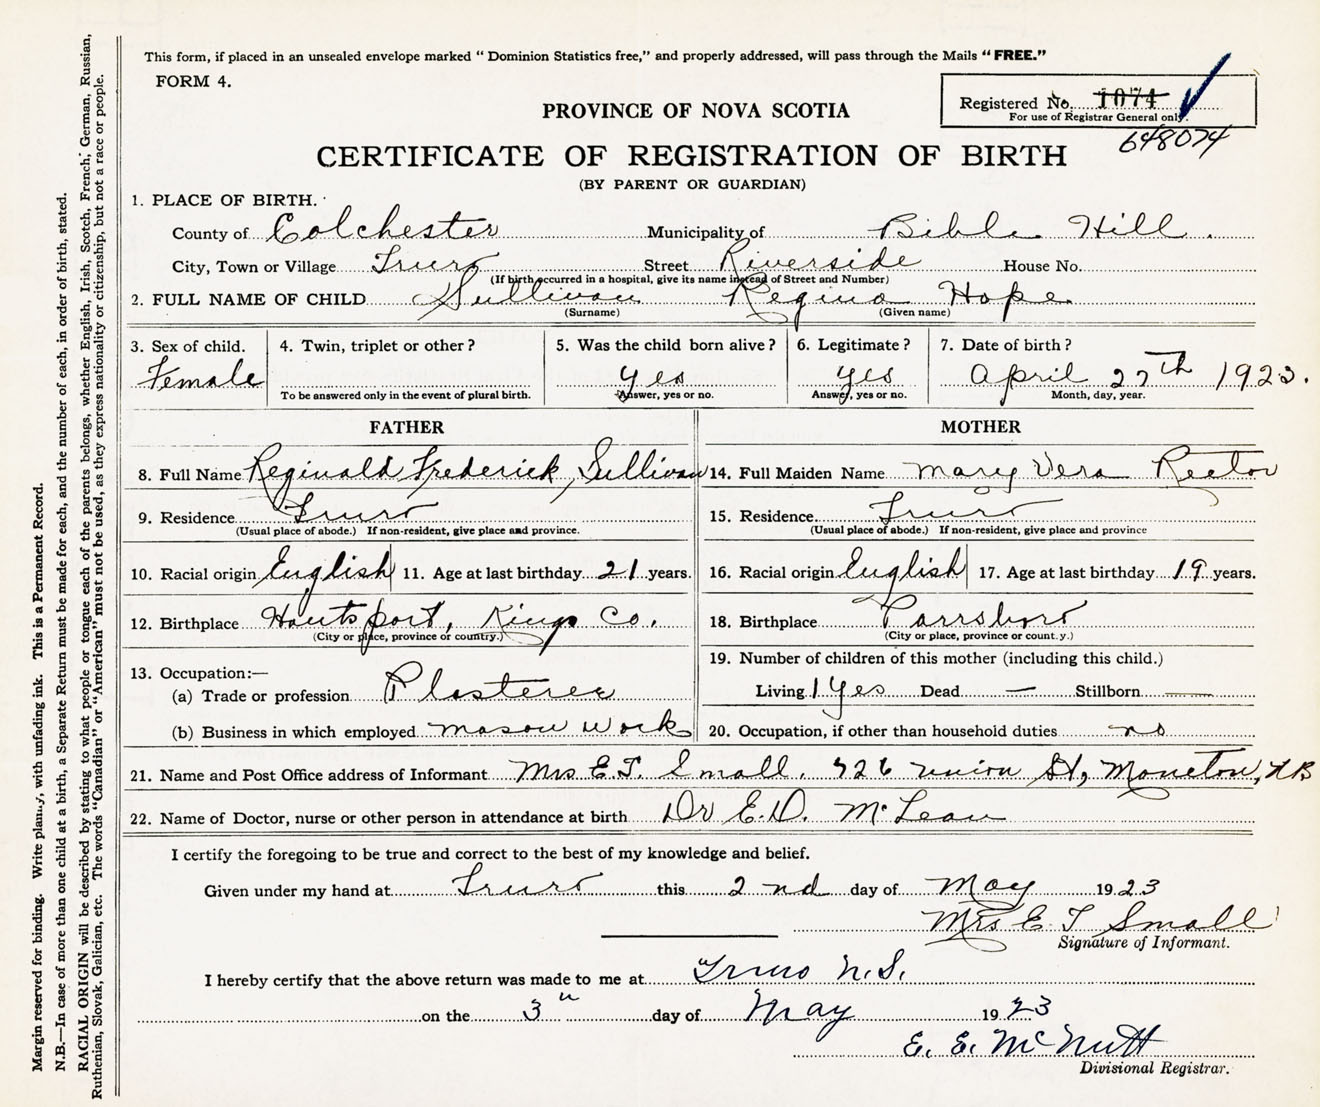 This form, if placed in an unsealed envelope marked "Dominion Statistics free," and properly addressed, will pass through the Mails "FREE."
FORM 4.
Registered No. 1074
For use of Registrar General only.
648074
PROVINCE OF NOVA SCOTIA
CERTIFICATE OF REGISTRATION OF BIRTH
(BY PARENT OR GUARDIAN)
1. PLACE OF BIRTH.
County of Colchester Municipality of Bible Hill.
City, Town or Village Truro Street Riverside House No.
(If birth occurred in a hospital, give its name instead of Street and Number)
2. FULL NAME OF CHILD Sullivan Regina Hope
(Surname) (Given name)
3. Sex of child. 4. Twin, triplet or other? 5. Was the child born alive? 6. Legitimate? 7. Date of birth?
Female yes yes April 27th 1923.
To be answered only in the event of plural birth. Answer, yes or no. Answer, yes or no. Month, day, year.
FATHER MOTHER
8. Full Name Reginald Frederick, Sullivan 14. Full Maiden Name Mary Vera Rector
9. Residence Truro 15. Residence Truro
(Usual place of abode.) If non-resident, give place and province. (Usual place of abode.) If non-resident, give place and province
10. Racial origin English 11. Age at last birthday 21 years. 16. Racial origin English 17. Age at last birthday 19 years.
12. Birthplace Hantsport, Kings Co. 18. Birthplace Parrsboro
(City or place, province or country.) (City or place, province or count.y.)
13. Occupation:— 19. Number of children of this mother (including this child.)
(a) Trade or profession Plasterer Living 1 Yes Dead — Stillborn —
(b) Business in which employed mason work 20. Occupation, if other than household duties no
21. Name and Post Office address of Informant Mrs E.T. Small. 726 Union St, Moncton, NB
22. Name of Doctor, nurse or other person in attendance at birth Dr E.D. McLean
I certify the foregoing to be true and correct to the best of my knowledge and belief.
Given under my hand at Truro this 2nd day of May 1923
Mrs E T Small
Signature of Informant.
I hereby certify that the above return was made to me at Truro N.S.
on the 3" day of May 1923
E. E. McNutt
Divisional Registrar.
Margin reserved for binding. Write plainly, with unfading ink. This is a Permanent Record.
N.B.—In case of more than one child at a birth, a Separate Return must be made for each, and the number of each, in order of birth, stated.
RACIAL ORIGIN will be described by stating to what people or tongue each of the parents belongs, whether English, Irish, Scotch, French, German, Russian,
Ruthenian, Slovak, Galician, etc. The words "Canadian" or "American" must not be used, as they express nationality or citizenship, but not a race or people.